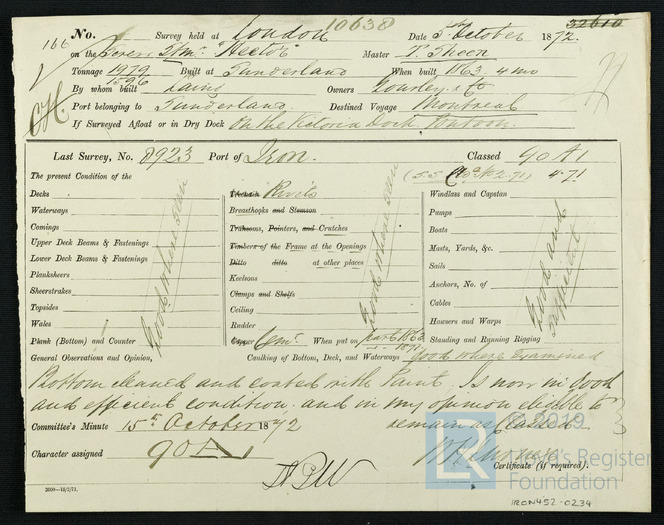 10638
No. Survey held at London Date 5th October 1872. 32610
166 on the Screw Stmr "Hector" Master T. Sheen
Tonnage 1979 Built at Sunderland When built 1863. 4 mo
1596
By whom built Laing Owners Gourley & Co
Port belonging to Sunderland. Destined Voyage Montreal
If Surveyed Afloat or in Dry Dock On the Victoria Dock Pontoon.
Last Survey, No. 8923 Port of Iron. Classed 90 A1
4.71
The present Condition of the
Decks
Waterways
Comings
Upper Deck Beams & Fastenings
Lower Deck Beams & Fastenings
Planksheers
Sheerstrakes
Topsides
Wales
Plank (Bottom) and Counter
Good where seen
Treenails Rivets
Breasthooks and Stemson
Transoms, Pointers, and Crutches
Timbers of the Frame at the Openings
Ditto ditto at other places
Keelsons
Clamps and Shelfs
Ceiling
Rudder
Copper Cemt. When put on part 1863
1871
Good where seen
Windlass and Capstan
Pumps
Boats
Masts, Yards, &c.
Sails
Anchors, No. of
Cables
Hawsers and Warps
Standing and Running Rigging
Good and
efficient
General Observations and Opinion, Caulking of Bottom, Deck, and Waterways Good where examined
Bottom cleaned and coated with Paint. Is now in Good
and efficient condition and in my opinion eligible to
remain as Classed
Committee's Minute 15th October 1872
Character assigned 90 A1
Certificate (if required).
2000—13/2/71.
LR © 2019
Lloyd's Register
Foundation
IRON452-0234